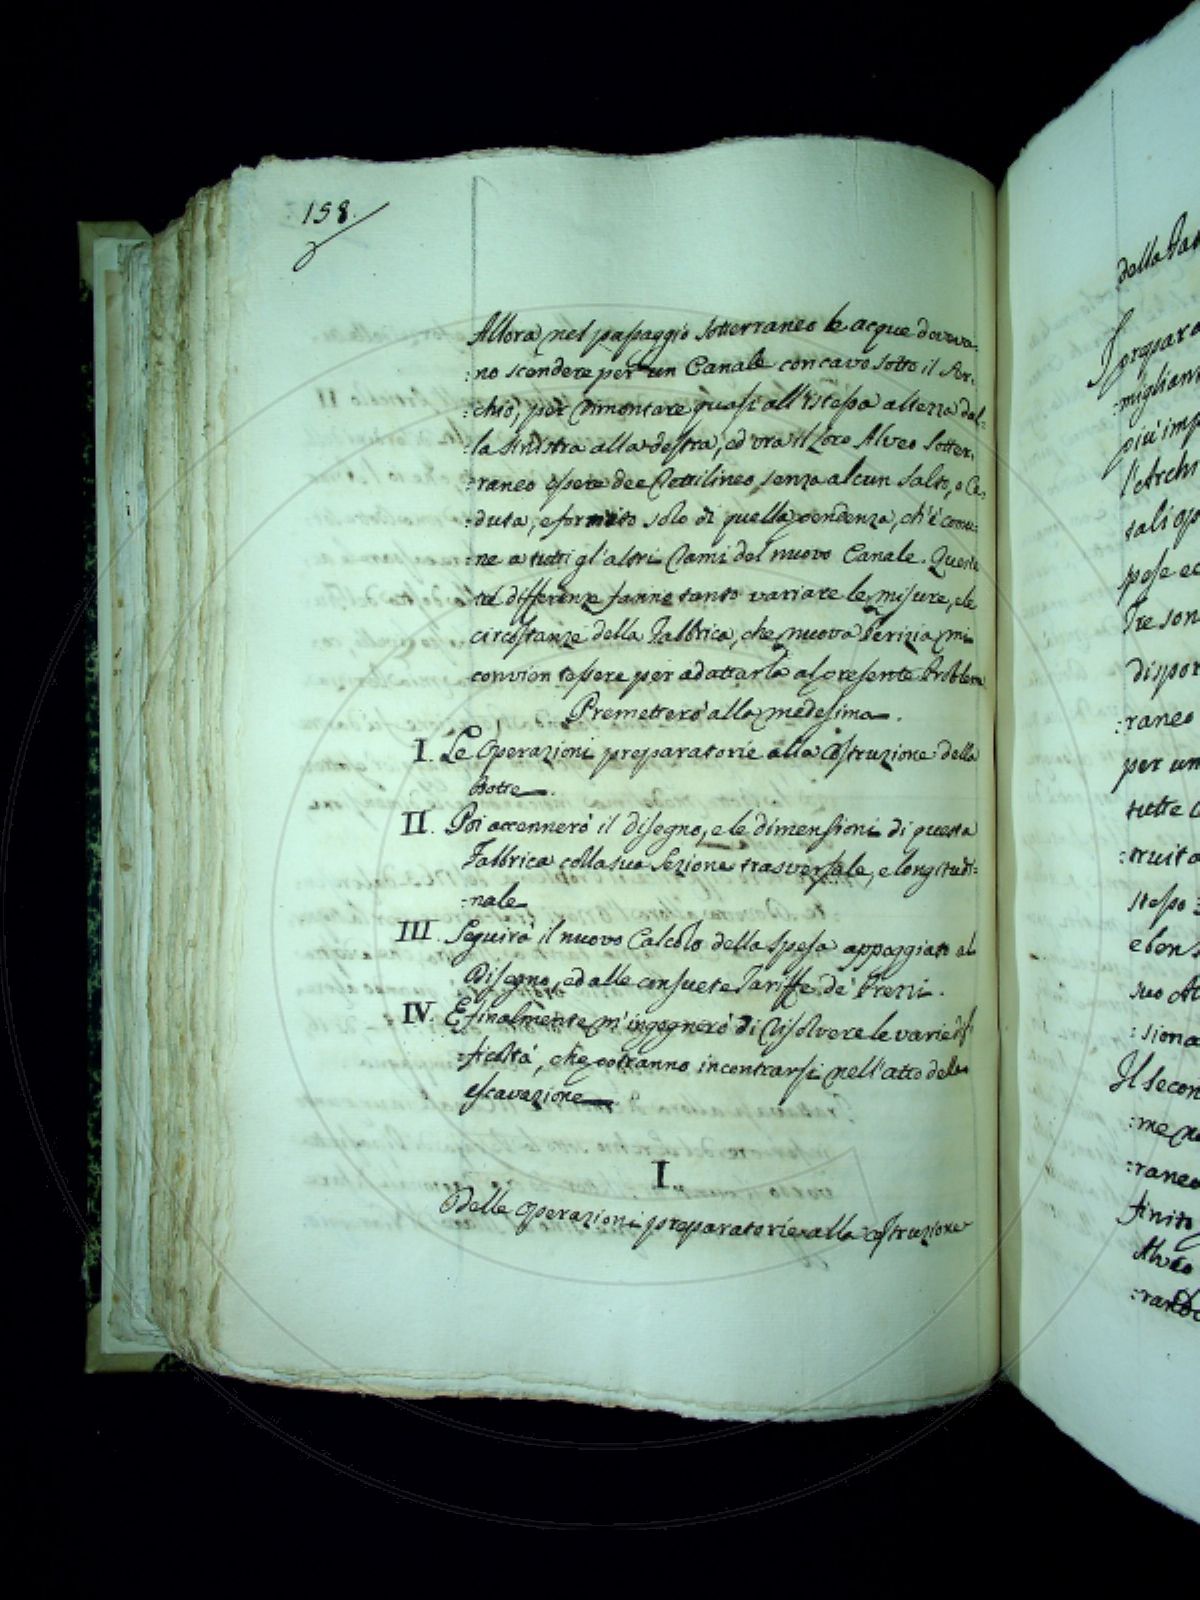 158.
Allora nel passaggio sotterraneo le acque doveva:
:no scendere per un Canale concavo sotto il Ser:
:chio, per rimontare quasi all'istessa altezza dal:
:la sinistra alla destra, ed ora il loro Alveo Sotter:
:raneo essere dee rettilineo senza alcun salto, o Ca:
:duta, e fornito solo di quella pendenza, ch'è comu:
:ne a tutti gl'altri rami del nuovo Canale. Queste
tai differenze fanno tanto variare le misure, e le
circostanze della Fabbrica, che nuova Perizia mi
convien tessere per adattarla al presente Problema
Premetterò alla medesima.
I. Le Operazioni preparatorie alla costruzione della
Botte.
II. Poi accennerò il disegno, e le dimensioni di questa
Fabbrica colla sua Sezione trasversale, e longitudi:
:nale
III. Seguirà il nuovo Calcolo della spesa appoggiato al
Disegno, ed alle consuete Tariffe de' Prezzi.
IV. E finalmente m'ingegnerò di risolvere le varie dif
:ficoltà, che potranno incontrarsi nell'atto della
escavazione.
I.
Delle operazioni preparatorie alla costruzione
della
migliant
più imp
l'Archi
pose ec
Tre son
dispor
:raneo
per un
tutte
:truita
stesso
e con
suo
:siona
Il secon
:me
:raneo
finito
Alveo